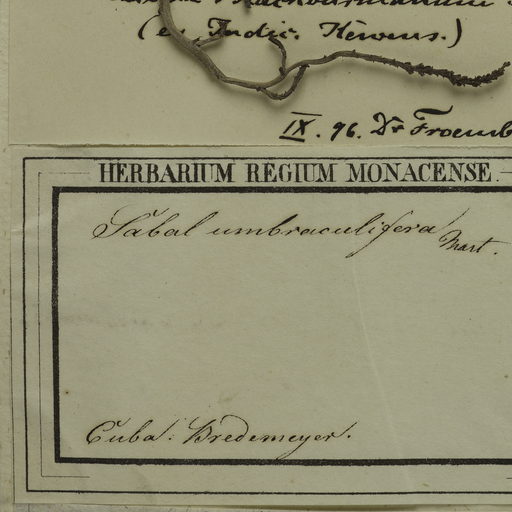 Blackburnianum
(ex Indic. Kewens.)
IX. 96. Dr Froemb
HERBARIUM REGIUM MONACENSE.
Sabal umbraculifera Mart.
Cuba: Bredemeyer.